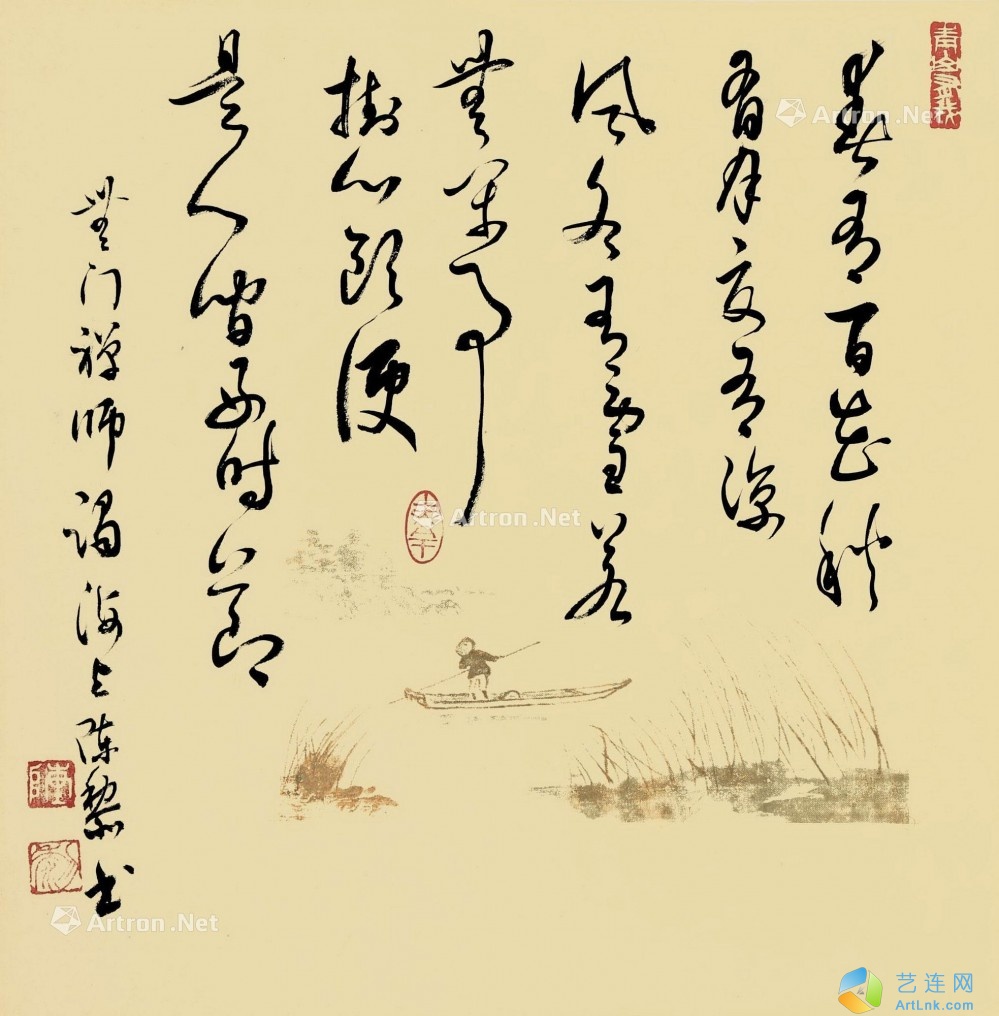 春有百花秋
有月夏有凉
风冬有雪若
無闲事
掛心头便
是人间好时节
無门禅师谒海上陈黎书
Artron.Net
Artron.Net
Artron.Net
艺连网
ArtLnk.com